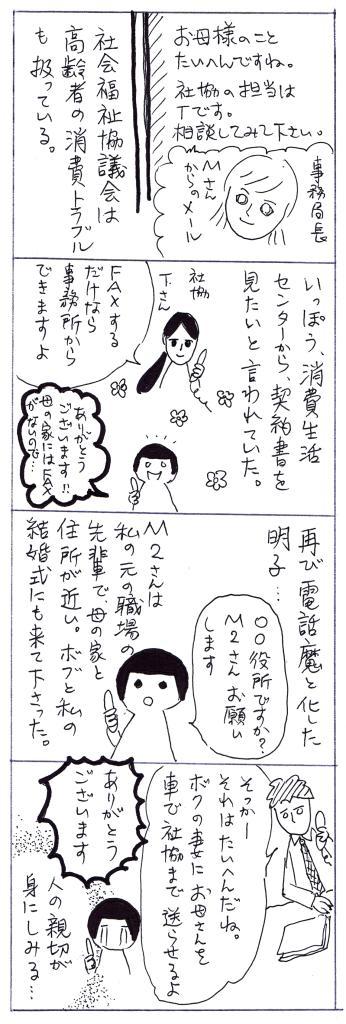 お母様のこと
たいへんですね。
社協の担当は
Tです。
相談してみて下さい。
事務局長
Mさん
からのメール
社会福祉協議会は
高齢者の消費トラブル
も扱っている。
いっぽう、消費生活
センターから、契約書を
見たいと言われていた。
社協
Tさん
FAXする
だけなら
事務所から
できますよ
ありがとう
ございます!!
母の家にはFAX
がないので…
再び電話魔と化した
明子…
〇〇役所ですか?
M2さんお願い
します
M2さんは
私の元の職場の
先輩で、母の家と
住所が近い。ボブと私の
結婚式にも来て下さった。
そっかー
それはたいへんだね。
ボクの妻にお母さんを
車で社協まで送らせるよ
ありがとう
ございます
人の親切が
身にしみる…